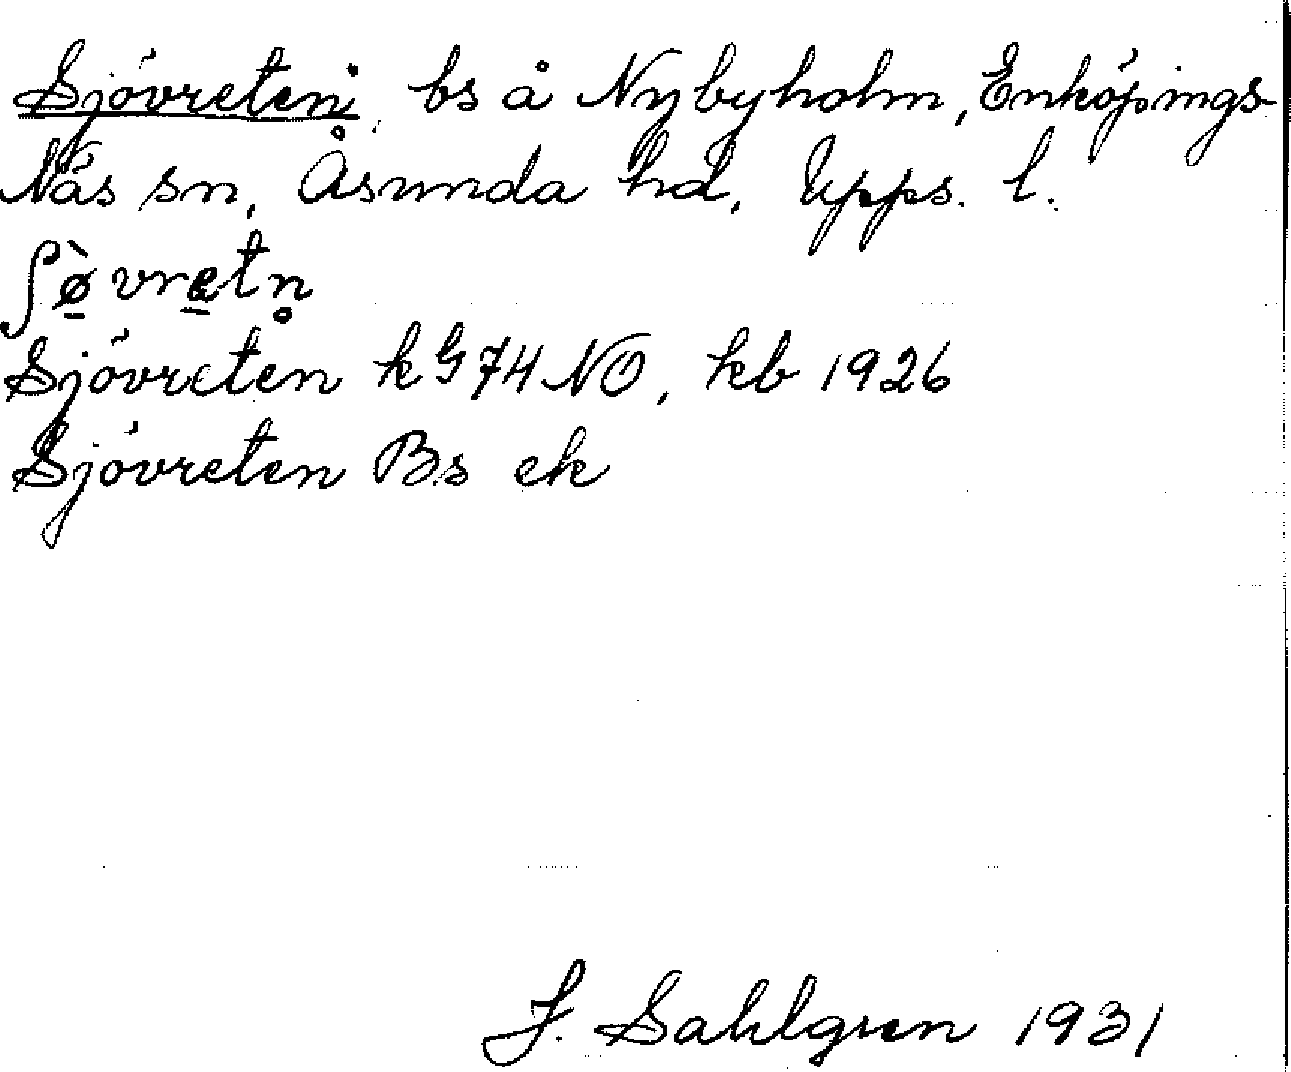 Sjövreten, bs å Nybyholm, Enköpings-
Näs sn, Åsunda hd, Upps. l.
ʃø̠̀vrɶ̠tn̥
Sjövreten kG74NO, kb 1926
Sjövreten Bs ek
J. Sahlgren 1931